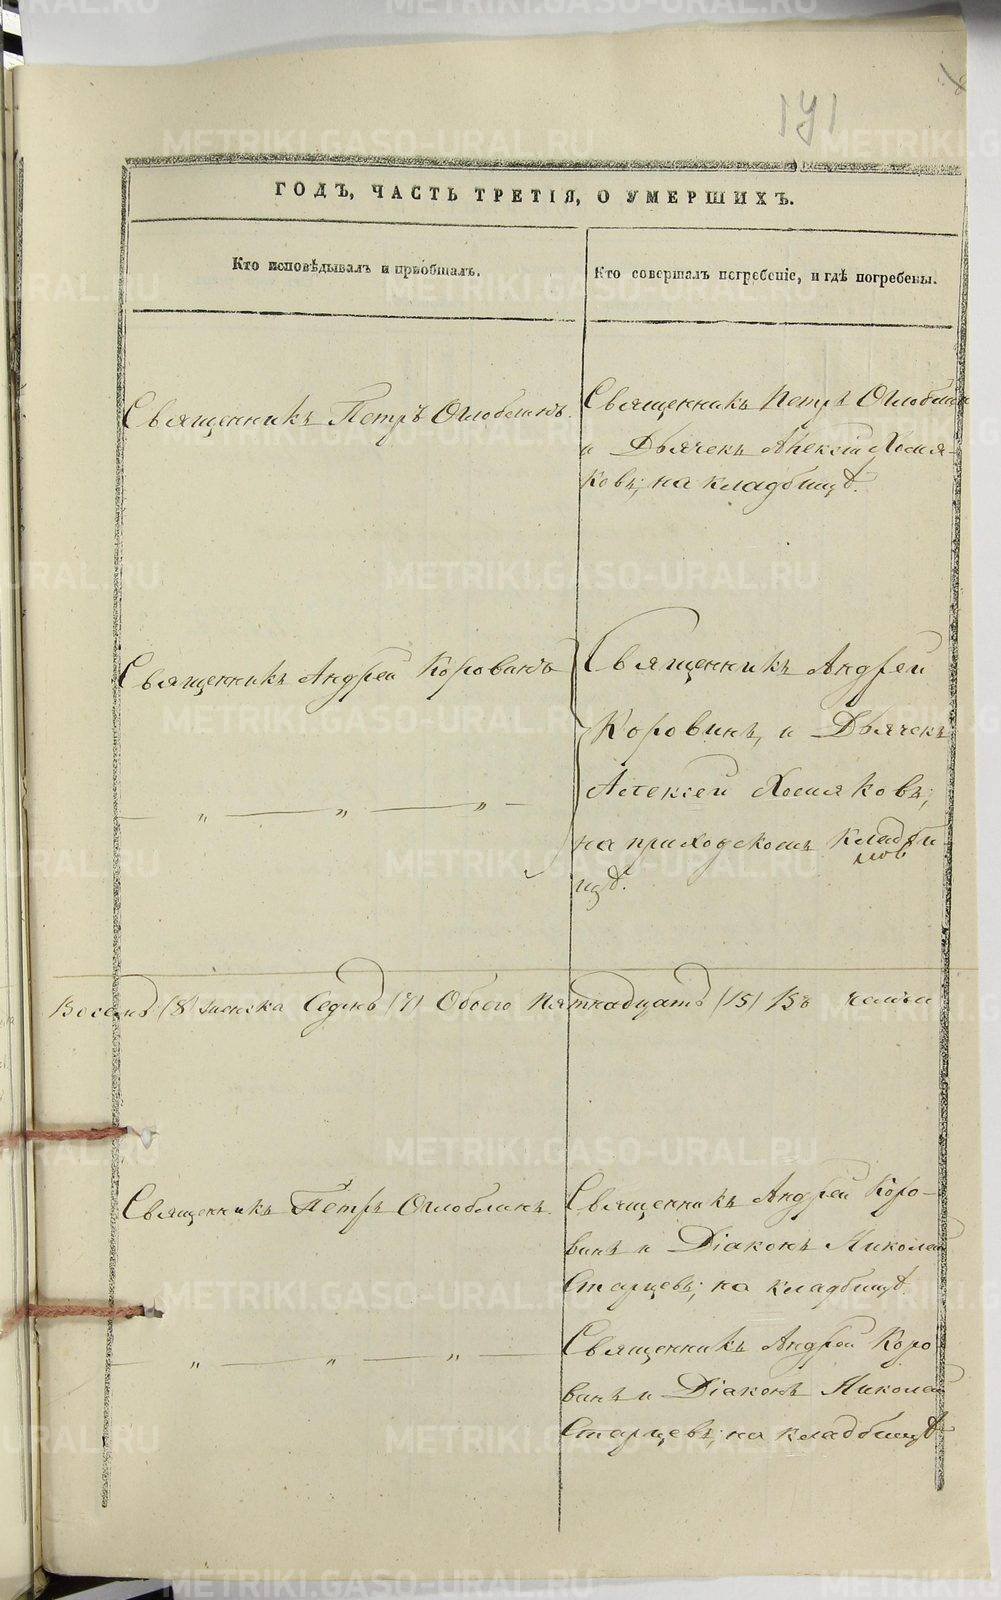 171
ГОДЪ, ЧАСТЬ ТРЕТІЯ, О УМЕРШИХЪ.
Кто исповѣдывалъ и пріобщалъ.
Кто совершалъ погребеніе, и гдѣ погребены.
Священникъ Петръ Оглоблинъ.
Священникъ Петръ Оглоблин
и Дьячекъ Алексій Хомя-
ковъ; на кладбищѣ.
Священникъ Андрей Коровинъ
Священникъ Андрей
Коровинъ, и Дьячекъ
Алексей Хомяковъ;
на приходскомъ кладби-
щѣ.
— „ — „ — „ —
Восемь (8) женска Седмь (7) Обоего Пятнадцать (15) Въ
Священникъ Петръ Оглоблинъ.
Священникъ Андрей Коро-
винъ и Діаконъ Николай
Старцевъ; на кладбищѣ.
— „ — „ — „ —
Священникъ Андрей Коро-
винъ и Діаконъ Николай
Старцевъ; на кладбищѣ
METRIKI.GASO-URAL.RU